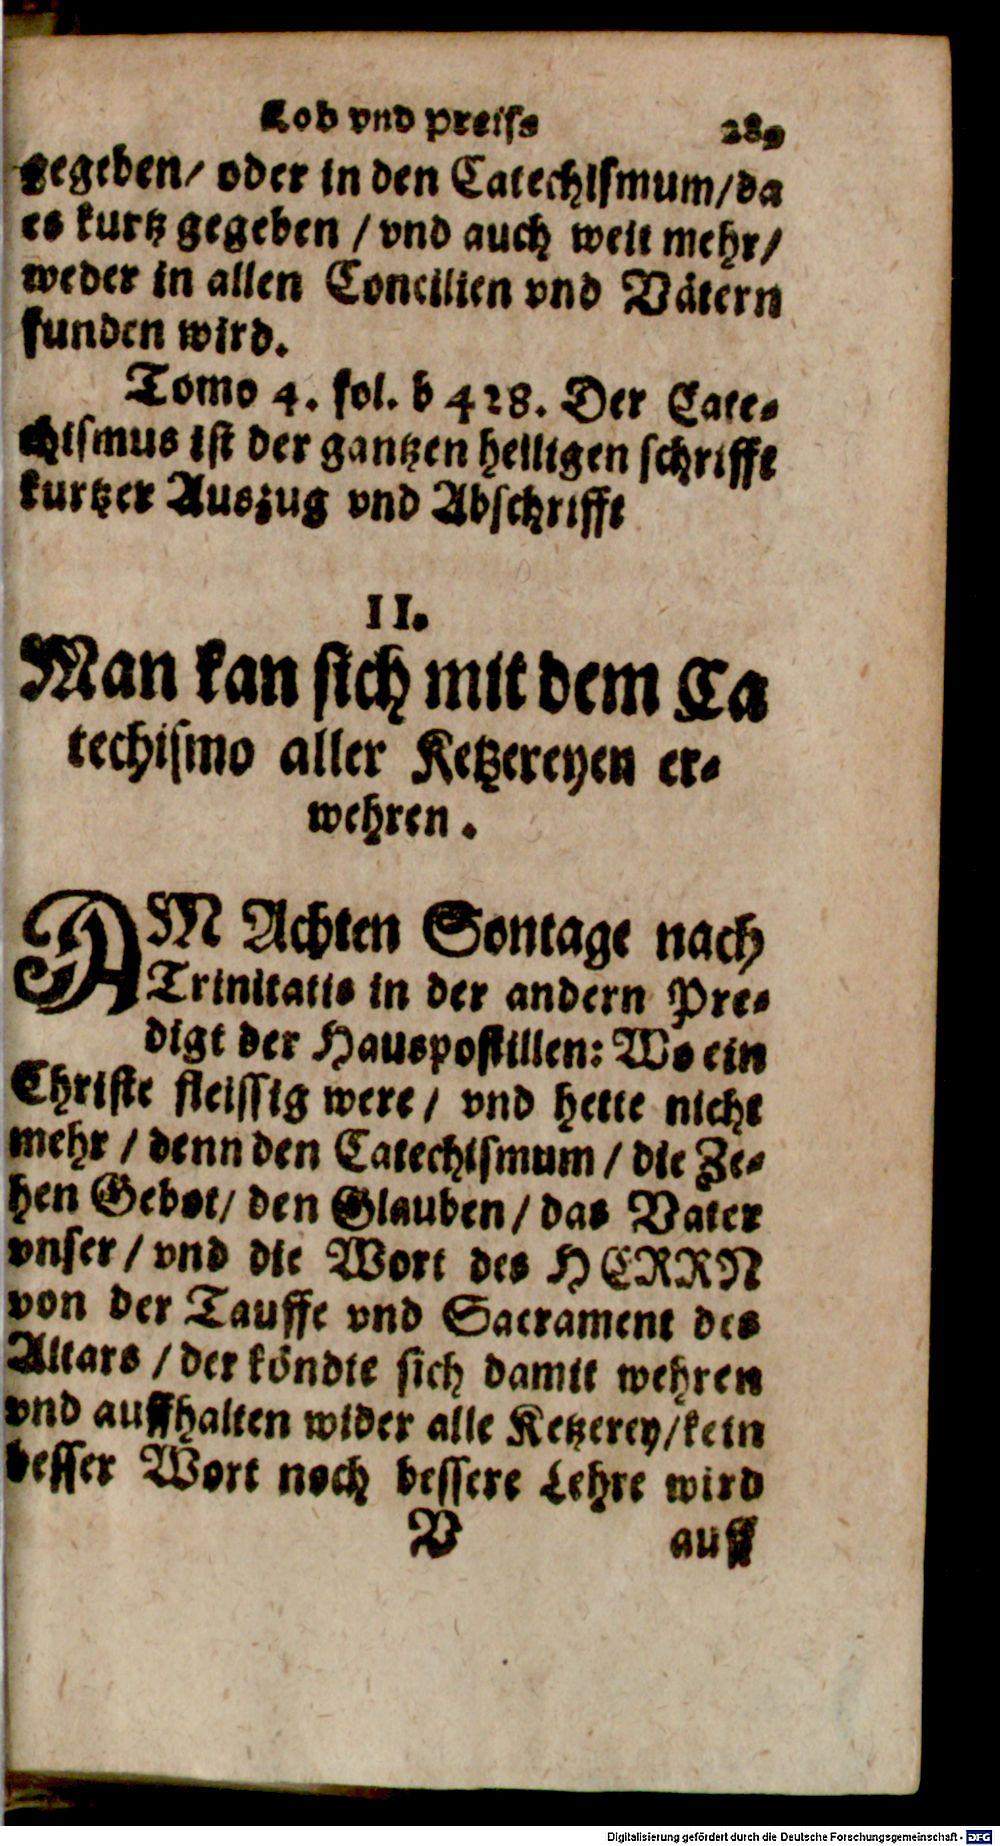 Lob vnd preiss 289
gegeben/ oder in den Catechismum/da
es kurtz gegeben / vnd auch weit mehr/
weder in allen Concilien vnd Vätern
funden wird.
Tomo 4. fol. b 428. Der Cate-
chismus ist der gantzen heiligen schrifft
kurtzer Auszug vnd Abschrifft
II.
Man kan sich mit dem Ca
techismo aller Ketzereyen er-
wehren.
AM Achten Sontage nach
Trinitatis in der andern Pre-
digt der Hauspostillen: Wo ein
Christe fleissig were / vnd hette nicht
mehr / denn den Catechismum / die Ze-
hen Gebot/ den Glauben / das Vater
vnser / vnd die Wort des HERRN
von der Tauffe vnd Sacrament des
Altars / der köndte sich damit wehren
vnd auffhalten wider alle Ketzerey/kein
besser Wort noch bessere Lehre wird
V auff
Digitalisierung gefördert durch die Deutsche Forschungsgemeinschaft - DFG